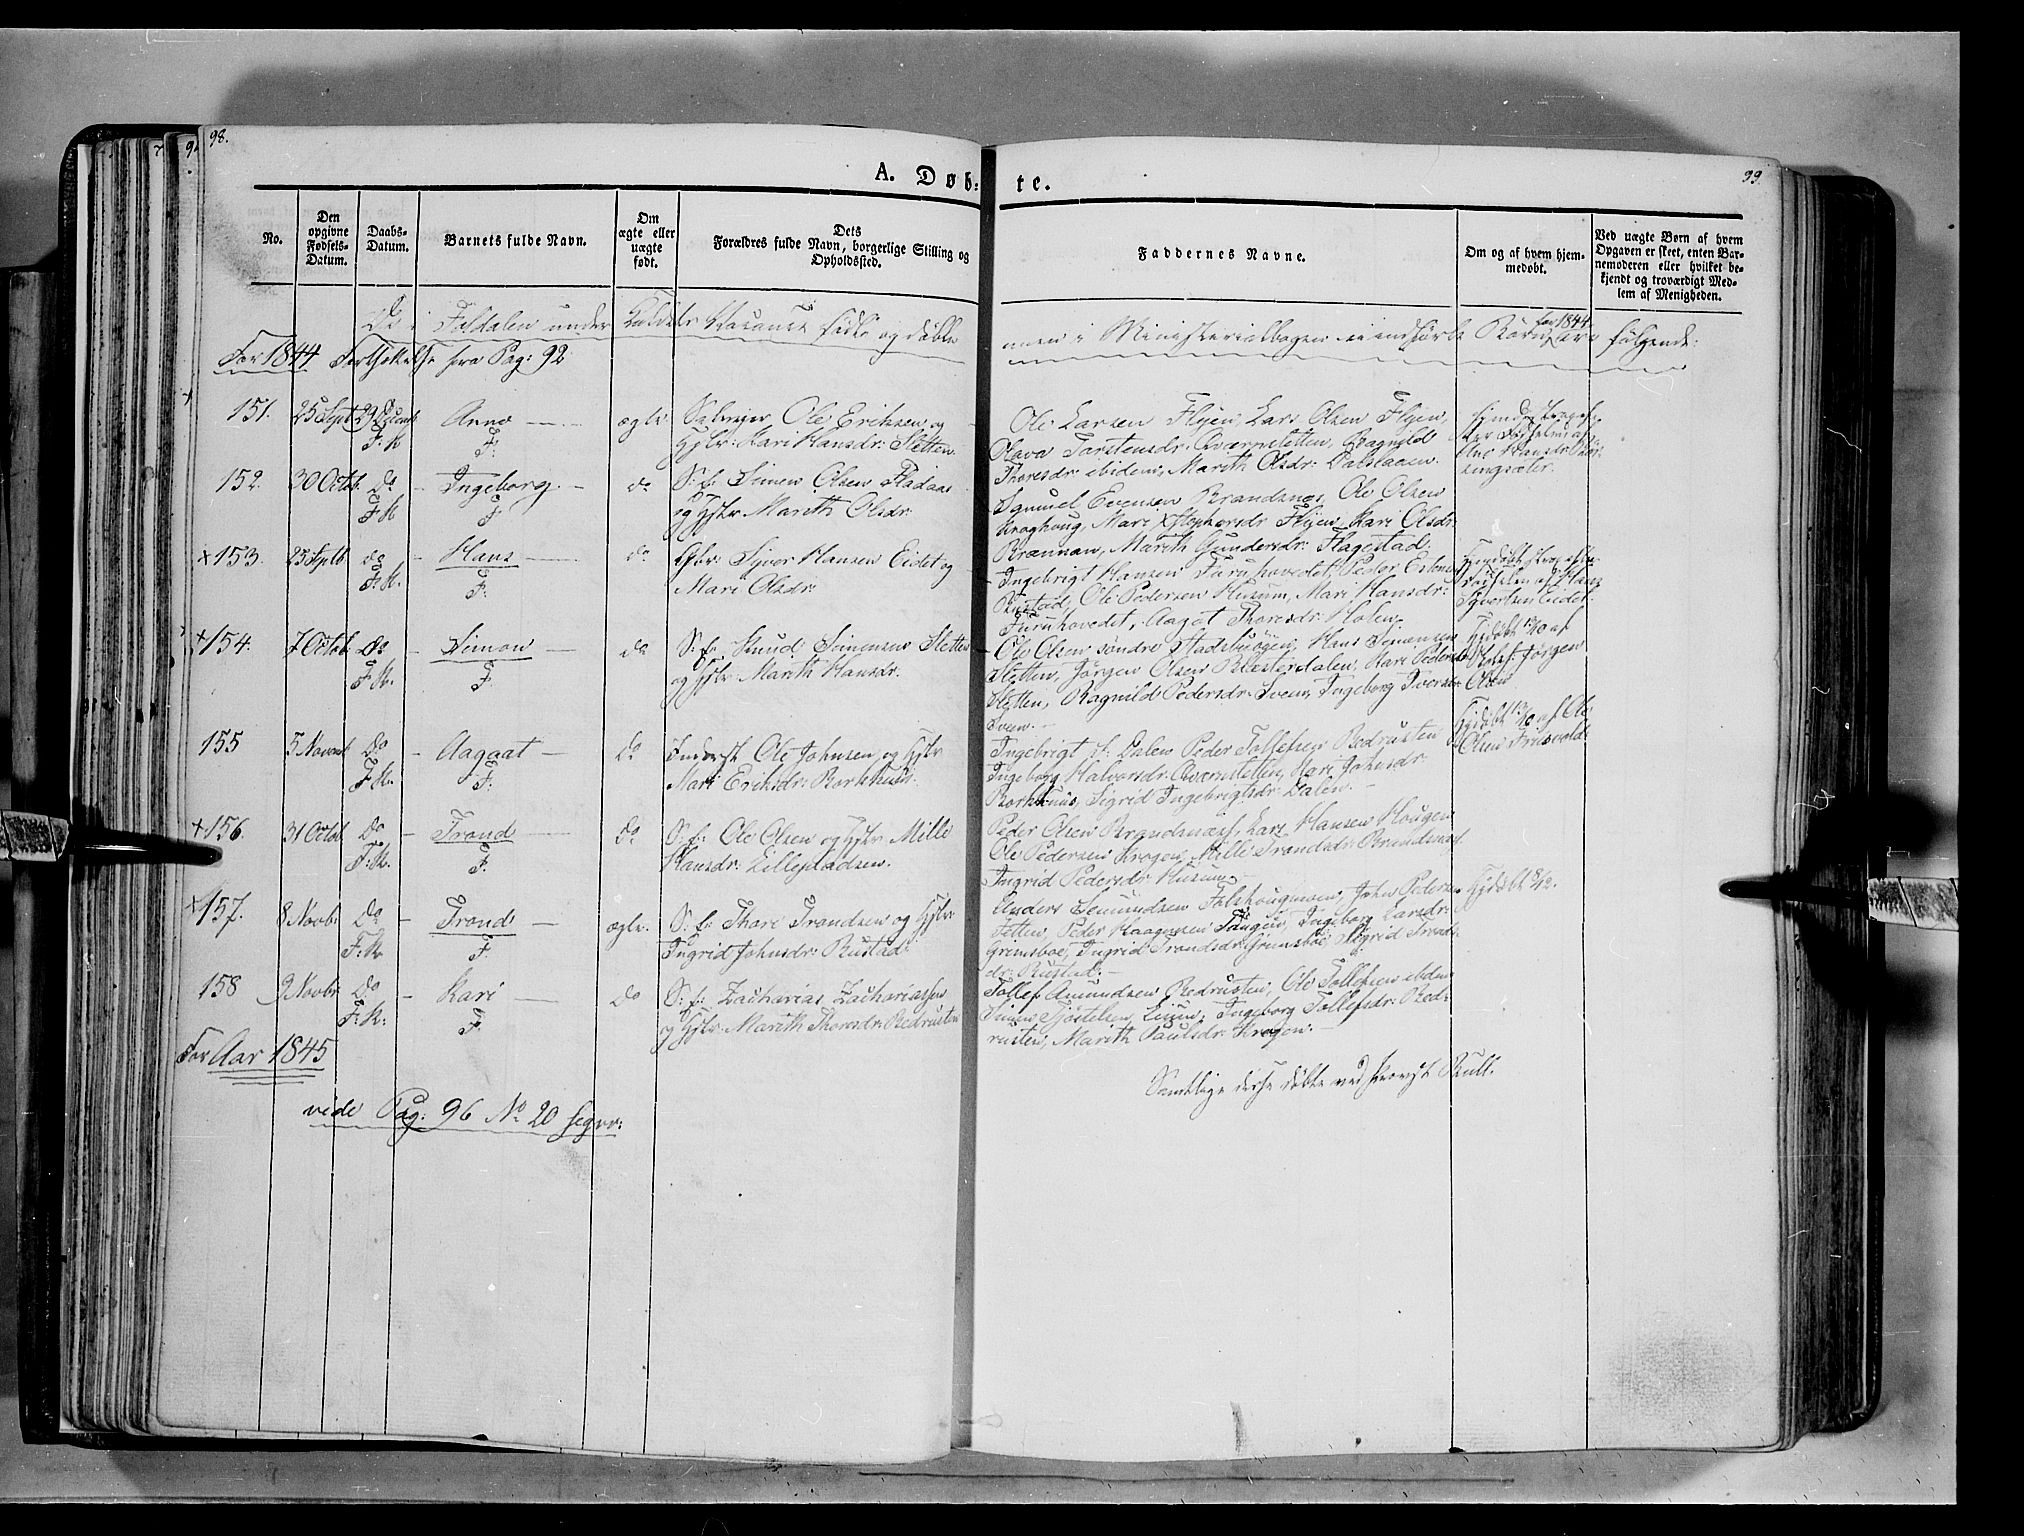 98.
99.
A. Døb-
te.
No.
Den opgivne Fødsels-Datum.
Daabs-Datum.
Barnets fulde Navn.
Om ægte eller uægte født.
Dets Forældres fulde Navn, borgerlige Stilling og Opholdssted.
Faddernes Navne.
Om og af hvem hjem-medøbt.
Ved uægte Børn af hvem Opgaven er skeet, enten Bar-nemoderen eller hvilket be-kjendt og troværdigt Med-lem af Menigheden.
De i Foldalen under Kaldets Vacance fødte og døbte
men i Ministerialbogen uindførte Børn for 1844 ere følgende:
For 1844 Fortsættelse fra Pag: 92
151. 25 Sept 29 Decmb F. K. Anne F: ægte
Selveier Ole Erichsen og
Hstr: Kari Hansdr: Sletten.
Ole Larsen Flyen, Lars Olsen Flyen,
Olava Torstensdr: Qværnsletten, Ragnild
Thoresdr: ibidem, Marith Olsdr: Dalslaaen.
152. 30 Octob. Do F. K Ingeborg F do
S: f: Simen Olsen Fladaas
og Hstr Marith Olsdr:
Samuel Evensen Brandsnæs, Ole Olsen
Kroghaug, Mari Xstophersdr Flyen, Kari Olsdr:
Brænnan, Marith Gundersdr: Flagestad.
+ 153. 25 Septb do F: K. Hans F: do
Gbr: Syver Hansen Eidet og
Mari Olsdr:
Ingebrigt Hansen Furuhovedet, Peder Estensen
Rustad, Ole Pedersen Husum, Mari Hansdr:
Furuhovedet, Aagot Thoresdr: Holen.
Hjemdøbt strax efter
Fødselen af Hans
Syversen Eidet.
+ 154. 7 Octob. do F. K. Simon F. do
S: f: Knud Simensen Sletten
og Hstr Marith Hansdr.
Ole Olsen søndre Stadsbuøyen, Hans Simensen
Sletten, Jørgen Olsen Ræsterdalen, Kari Pedersdr
Sletten, Ragnild Pedersdr: Sveen, Ingeborg Iversdr:
Sveen.
Hjdøbt 13/10 af
Jørgen
Olsen
155 5 Novmb Do F K. Aagaat F: do
Inderst Ole Johnsen og Hstr
Mari Eriksdr: Borkhuus.
Ingebrigt S: Dalen Peder Tollefsen Redrusten
Ingeborg Halvorsdr: Qværnsletten, Mari Johnsdr:
Borkhuus, Sigrid Ingebrigtsdr: Dalen.
Hjdøbt 13/10 af Ole
Olsen Friisvold.
+ 156 31 Octob Do F: K. Trond F. do
S: f: Ole Olsen og Hstr Milli
Hansdr: Lillepladsen.
Peder Olsen Brandsnæss, Lars Hansen Hougen
Ole Pedersen Krogen, Milli Trondsdr: Brandsnæs
Ingrid Pedersdr: Husum.
+ 157. 8 Novbr Do F: K Trond F. ægte.
S: f: Thore Trondsen og Hstr:
Ingrid Johnsdr: Rustad:
Anders Semundsen Folshougmoen, John Pedersen
Sletten, Peder Haagensen Tangen, Ingeborg Larsdr:
Grimsboe, Ingrid Trondsdr: Grimsboe, Sigrid Tronds-
dr: Rustad.
Hjdøbt 8/12.
158 9 Novbr Do F: K: Kari F. do
S: f: Zacharias Zachariassen
og Hstr Marith Thoresdr: Redrusten
Tollef Amundsen Redrusten, Ole Tollefsen ibdm
Simen Tjøstelsen, Ingeborg Tollefsdr: Red-
rusten, Marith Paulsdr: Krogen.
For Aar 1845
Samtlige disse døbte ved Provst Kull.
vide Pag: 96 No 20 seqv: